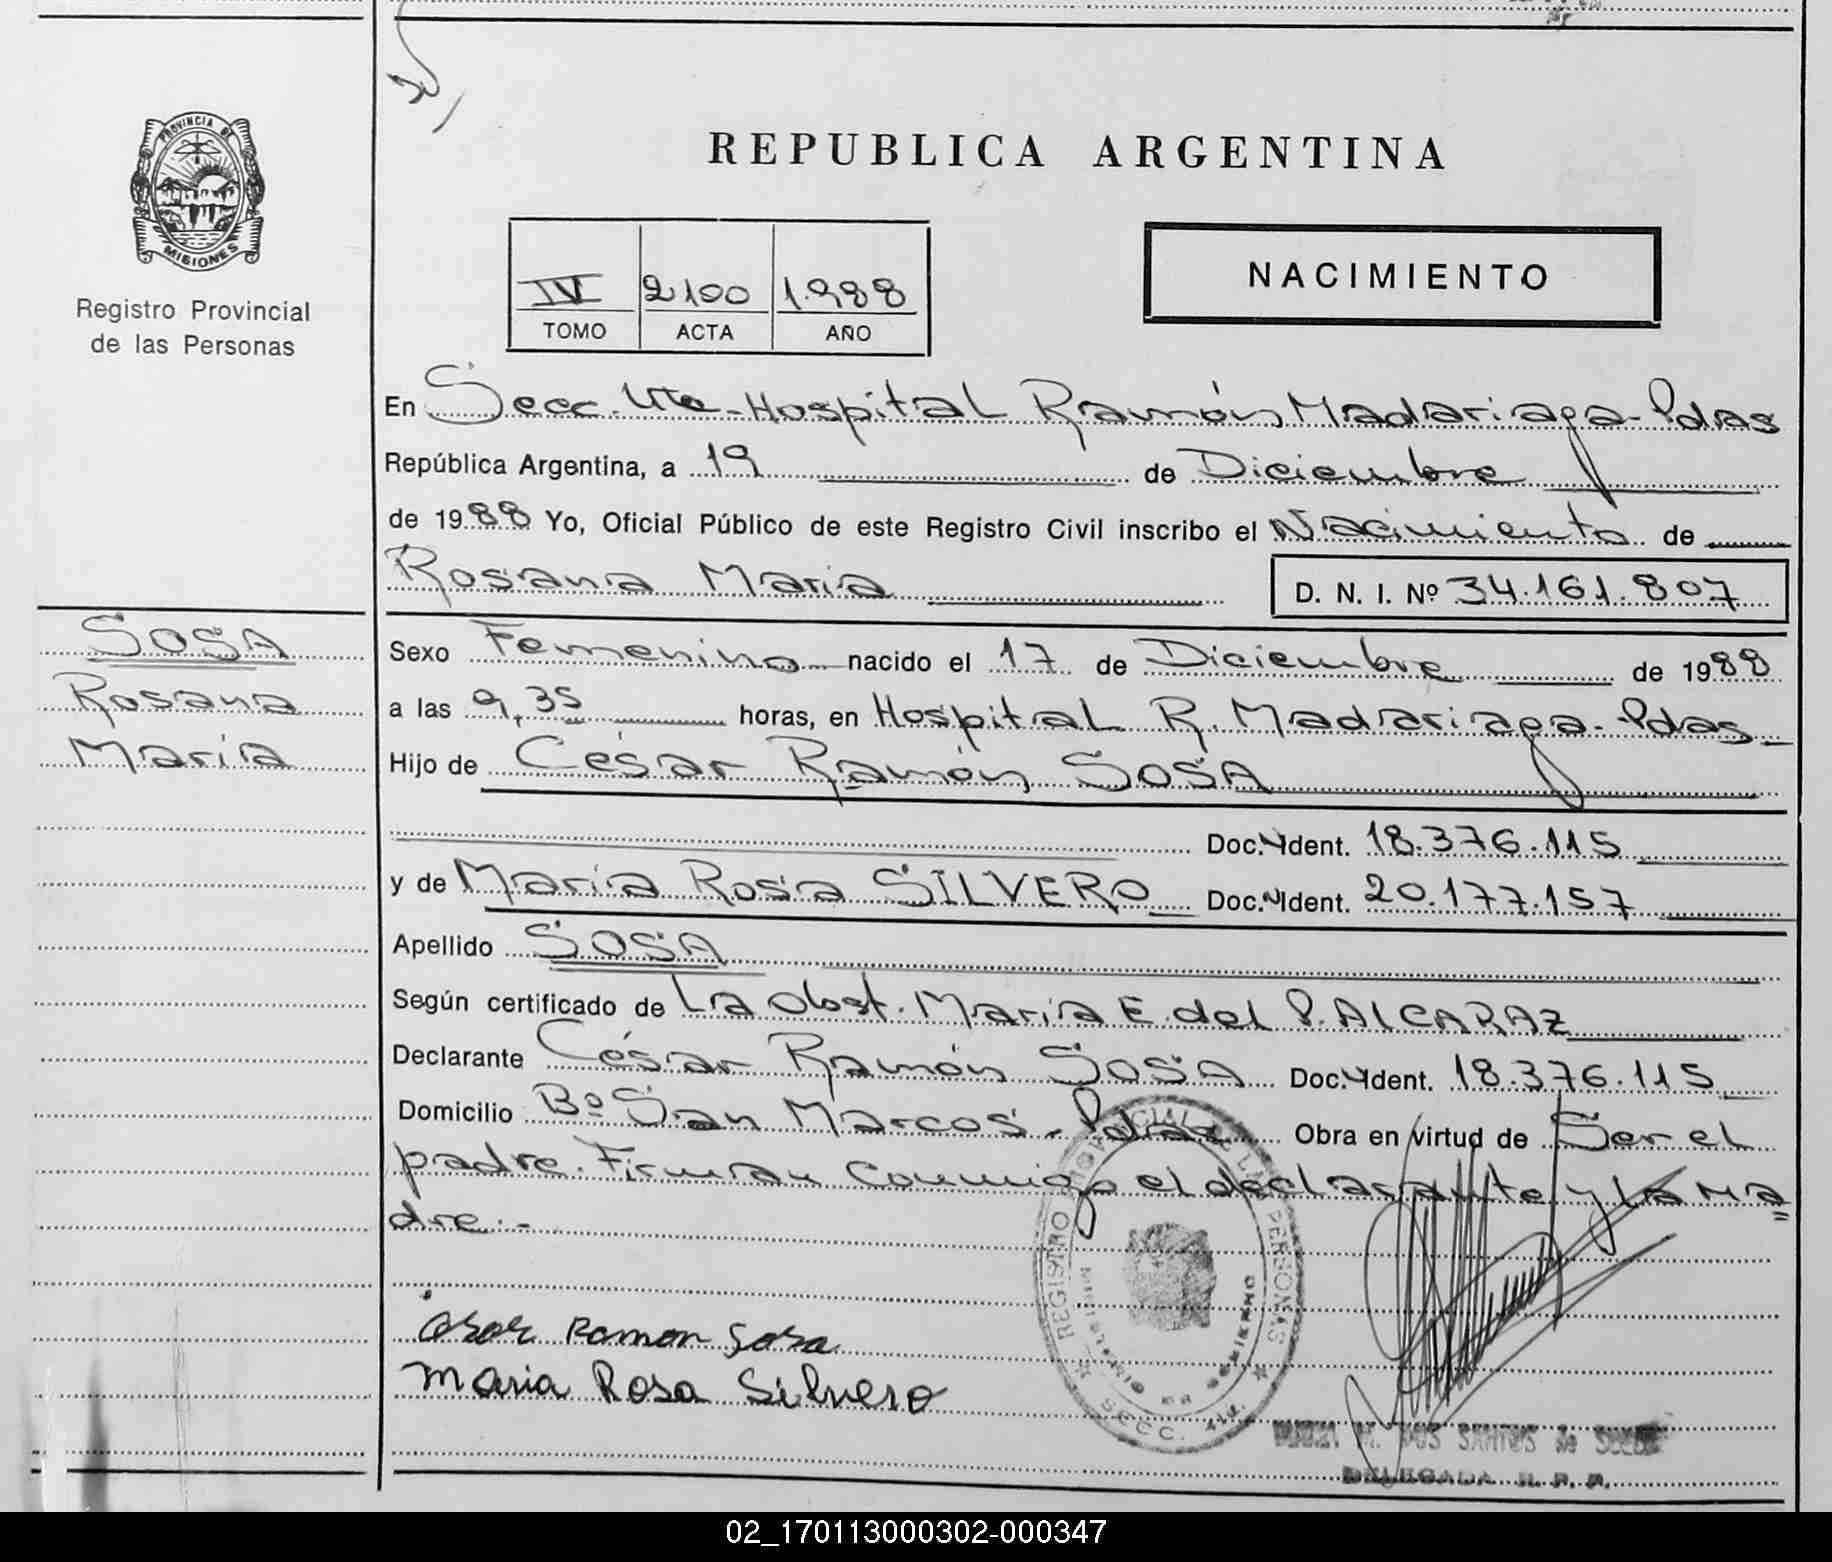 PROVINCIA DE
MISIONES
Registro Provincial
de las Personas
REPUBLICA ARGENTINA
IV 2100 1.988
TOMO ACTA AÑO
NACIMIENTO
En Secc. 4ta - Hospital Ramón Madariaga - Pdas
República Argentina, a 19 de Diciembre
de 1988 Yo, Oficial Público de este Registro Civil inscribo el Nacimiento de
Rosana María D. N. I. Nº 34.161.807
SOSA
Rosana
María
Sexo Femenino nacido el 17 de Diciembre de 1988
a las 9,35 horas, en Hospital R. Madariaga - Pdas
Hijo de César Ramón SOSA
Doc. Ident. 18.376.115
y de María Rosa SILVERO Doc. Ident. 20.177.157
Apellido SOSA
Según certificado de La Obst. María E. del P. ALCARAZ
Declarante César Ramón SOSA Doc. Ident. 18.376.115
Domicilio Bº San Marcos - Pdas Obra en virtud de Ser el
padre. Firman conmigo el declarante y la ma
dre.-
REGISTRO PROVINCIAL DE LAS PERSONAS
MINISTERIO DE GOBIERNO
SECC. 4ta.
Cesar Ramon Sosa
Maria Rosa Silvero
M. DOS SANTOS de
DELEGADA R. P. P.
02_170113000302-000347